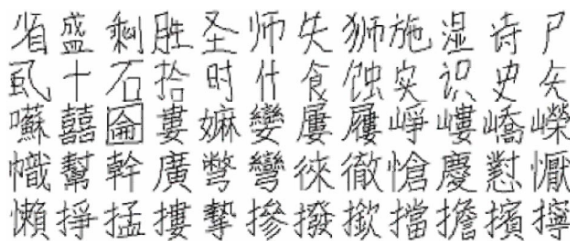 省盛剩胜圣师失狮施湿诗尸
虱十石拾时什食蚀实识史矢
囌囍圇婁嫲孌屢屨崢嶁嶠嶸
幟幫幹廣彆彎徠徹愴慶懟懨
懶掙掹摟摯摻撥撳擋擔擯擰